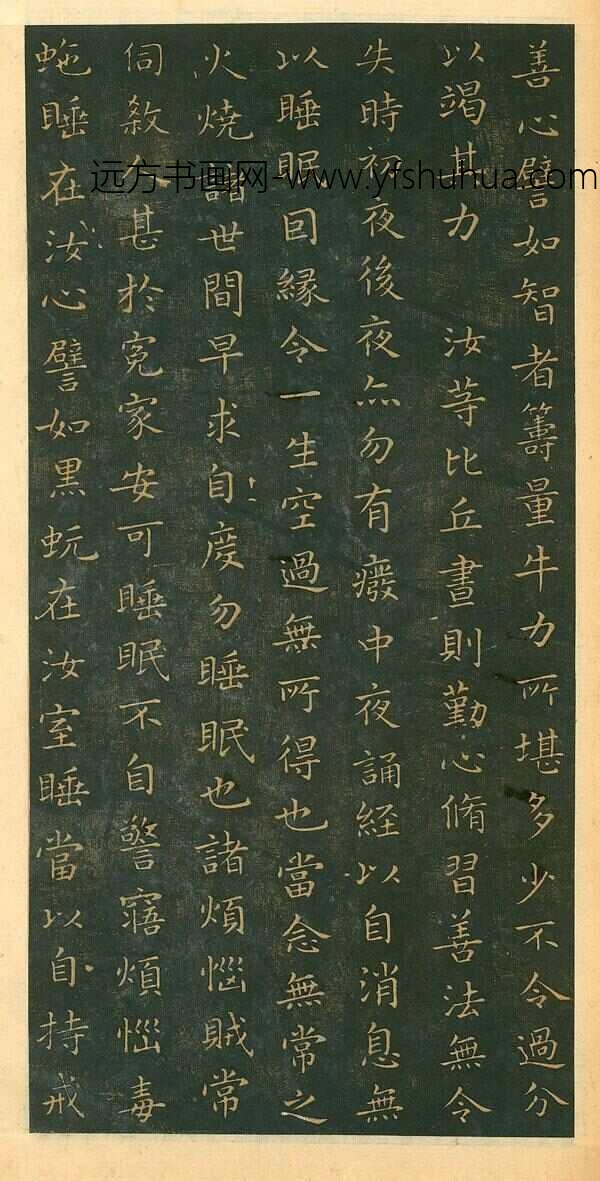 善心譬如智者籌量牛力所堪多少不令過分
以竭其力 汝等比丘晝則勤心脩習善法無令
失時初夜後夜亦勿有癈中夜誦經以自消息無
以睡眠因緣令一生空過無所得也當念無常之
火燒諸世間早求自度勿睡眠也諸煩惱賊常
伺煞人甚於寃家安可睡眠不自警寤煩惱毒
虵睡在汝心譬如黑蚖在汝室睡當以自持戒
远方书画网-www.yfshuhua.com